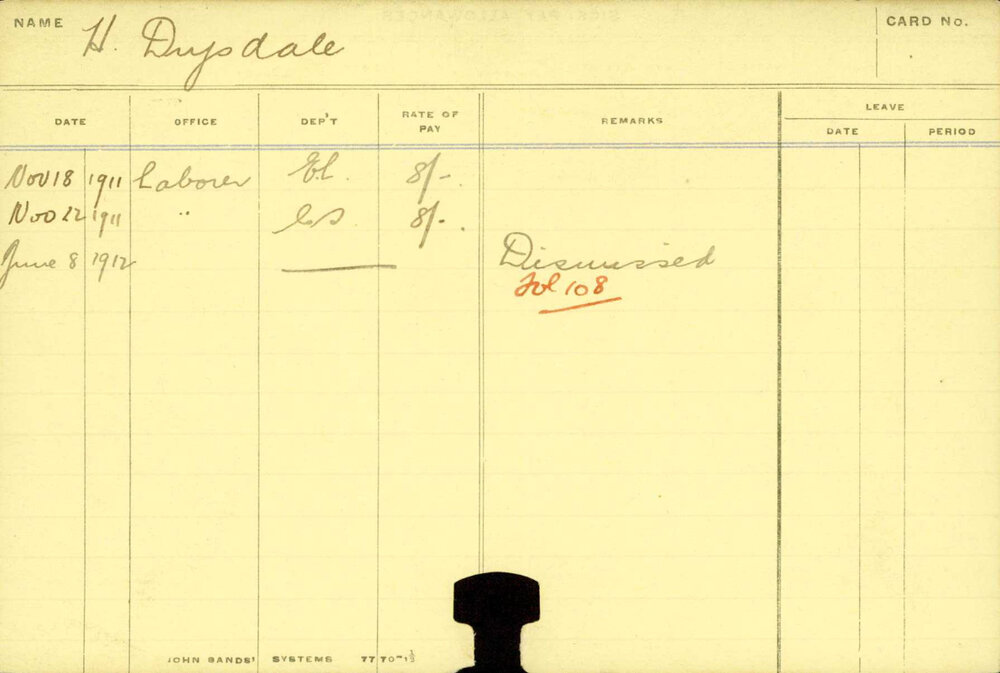 NAME H. Drysdale CARD No.
DATE OFFICE DEP'T RATE OF PAY REMARKS LEAVE
DATE PERIOD
Nov 18 1911 Laborer El. 8/-
Nov 22 1911 " 8/-.
June 8 1912 Dismissed
Fol 108
JOHN SANDS' SYSTEMS 7770